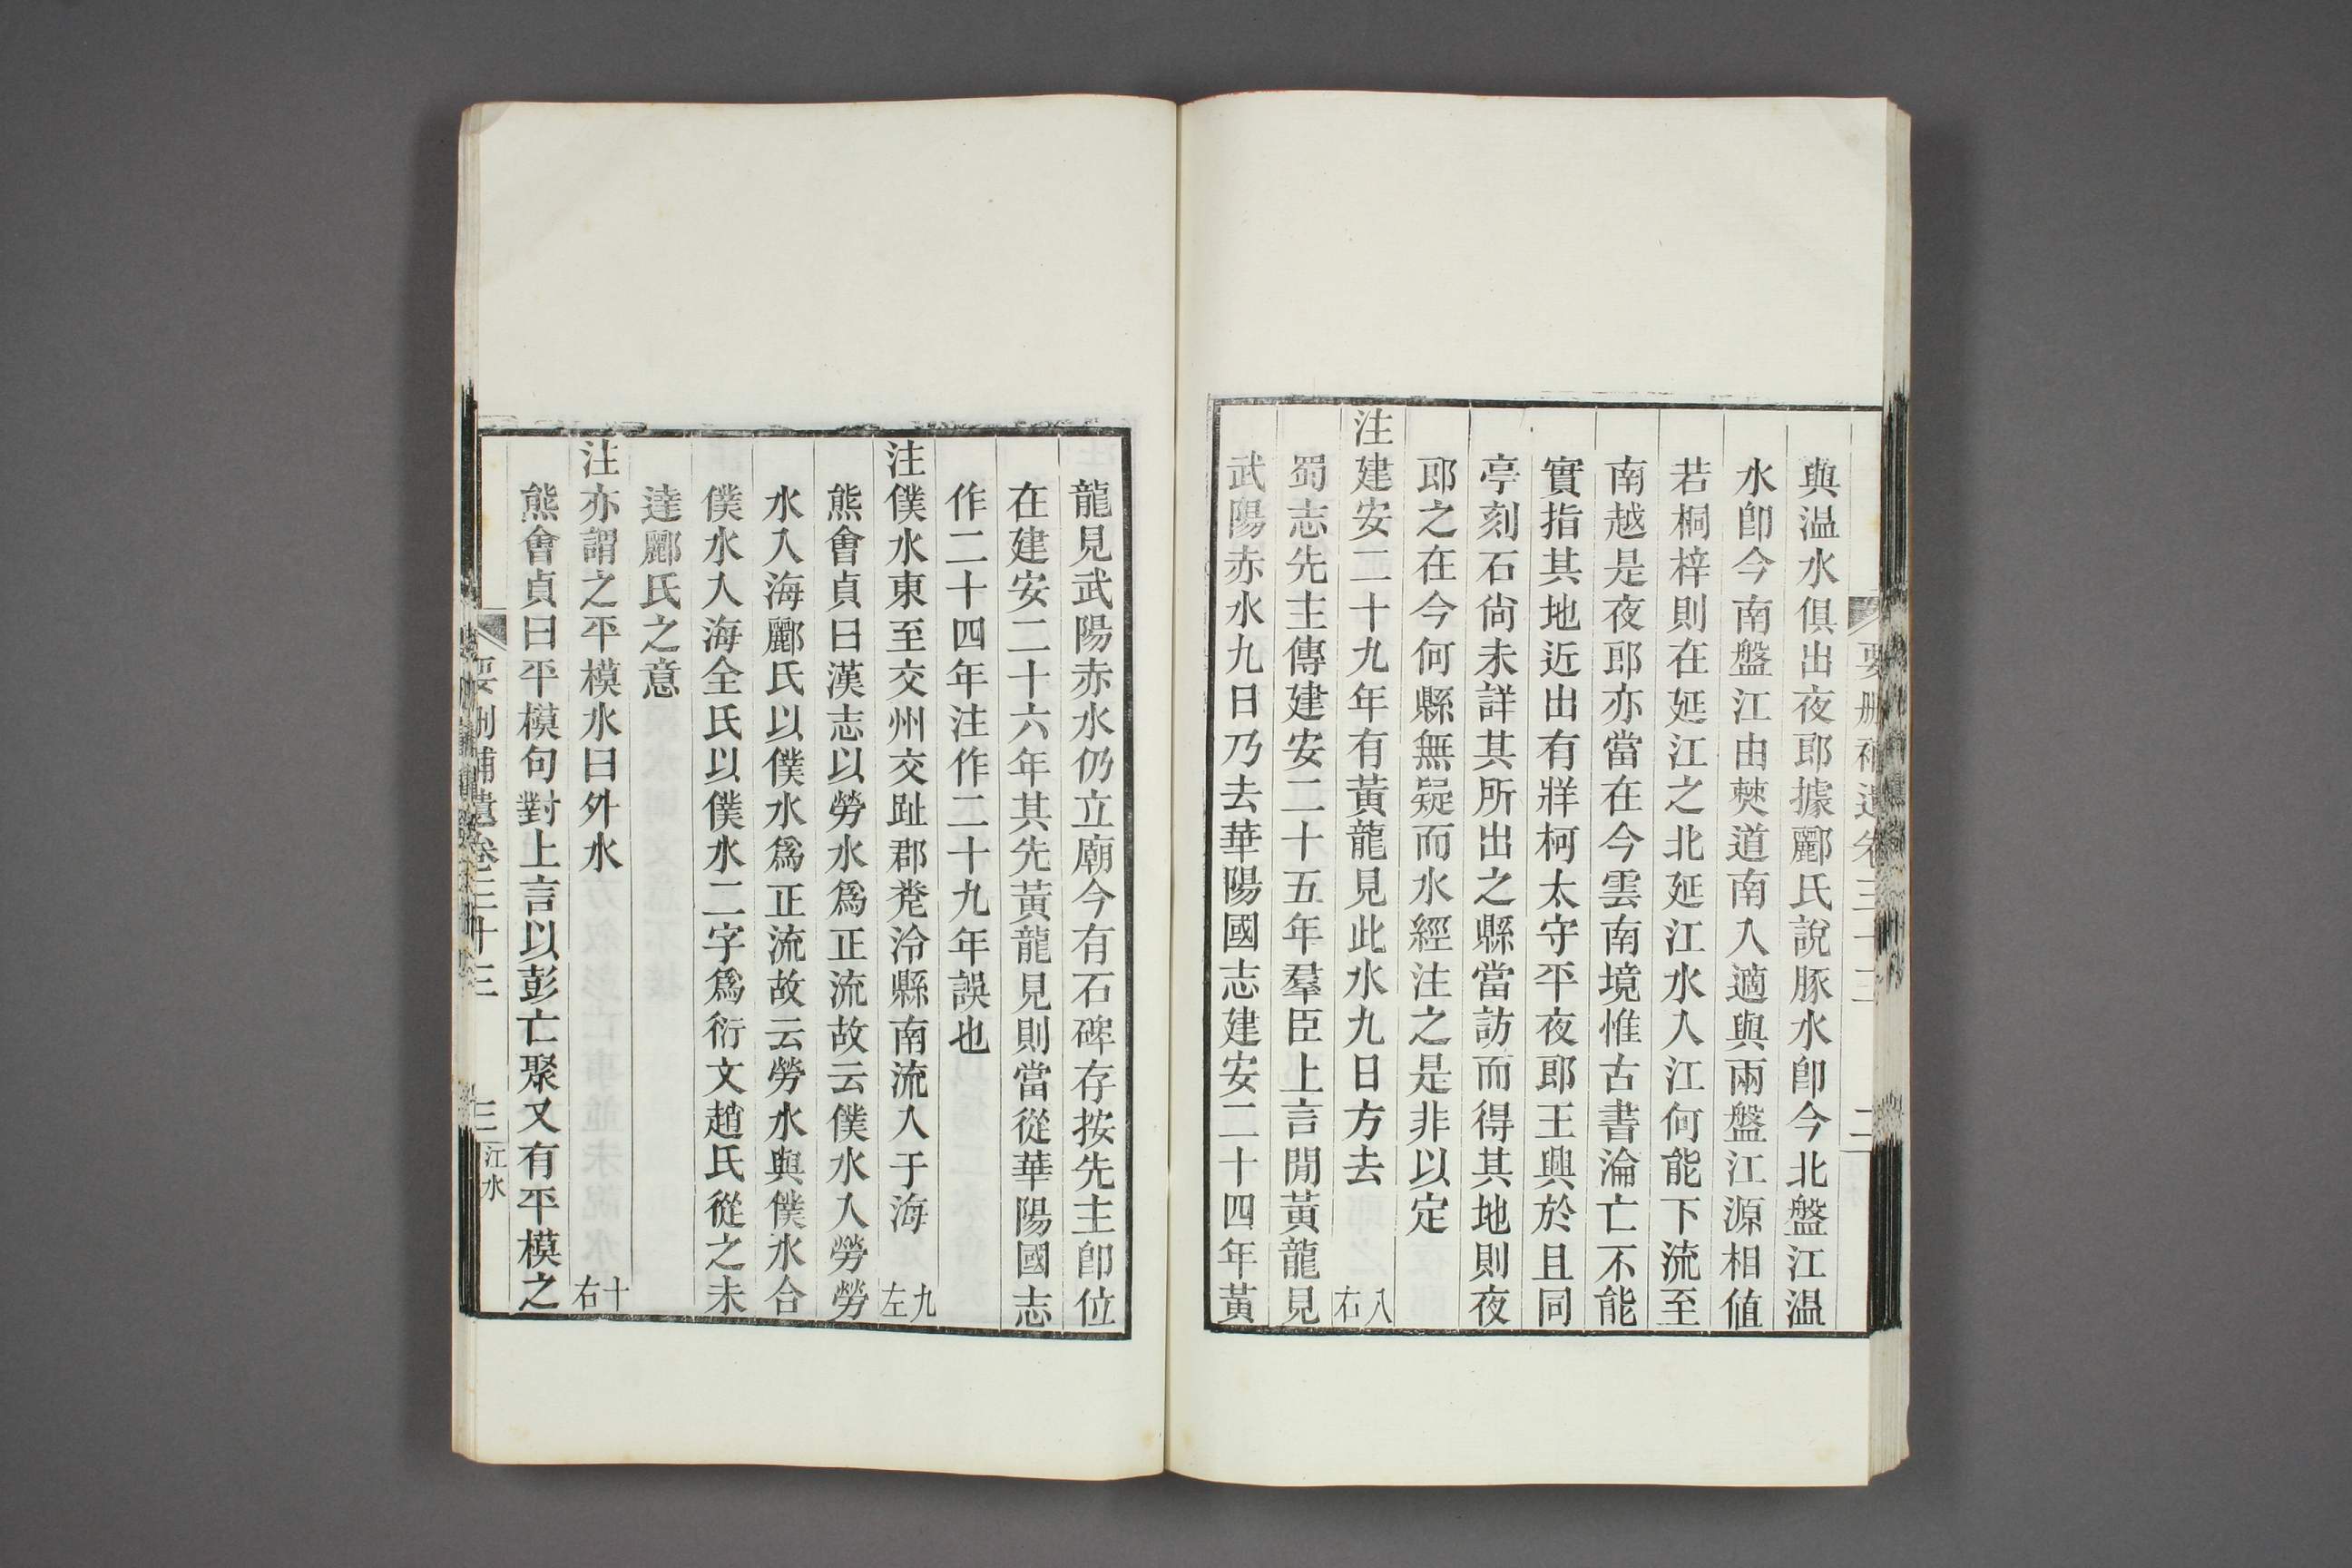 要刪補遺卷三十三 二
與温水俱出夜郎據酈氏說豚水卽今北盤江温
水卽今南盤江由僰道南入適與兩盤江源相値
若桐梓則在延江之北延江水入江何能下流至
南越是夜郎亦當在今雲南境惟古書淪亡不能
實指其地近出有牂柯太守平夜郎王興於且同
亭刻石尙未詳其所出之縣當訪而得其地則夜
郎之在今何縣無疑而水經注之是非以定
注建安二十九年有黃龍見此水九日方去 八右
蜀志先主傳建安二十五年羣臣上言閒黃龍見
武陽赤水九日乃去華陽國志建安二十四年黃
龍見武陽赤水仍立廟今有石碑存按先主卽位
在建安二十六年其先黃龍見則當從華陽國志
作二十四年注作二十九年誤也
注僕水東至交州交趾郡㲋泠縣南流入于海 九左
熊會貞曰漢志以勞水爲正流故云僕水入勞勞
水入海酈氏以僕水爲正流故云勞水與僕水合
僕水入海全氏以僕水二字爲衍文趙氏從之未
達酈氏之意
注亦謂之平模水曰外水 十右
熊會貞曰平模句對上言以彭亡聚又有平模之
要刪補遺卷三十三 三 江水